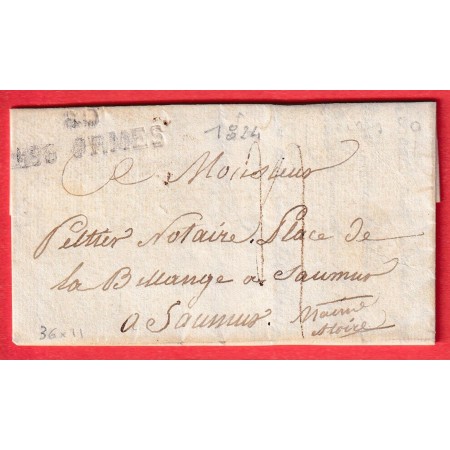 80
LES ORMES
1824
A Monsieur
Peltier Notaire. Place de
la Billange a Saumur
a Saumur.
Maine
et loire
36x11